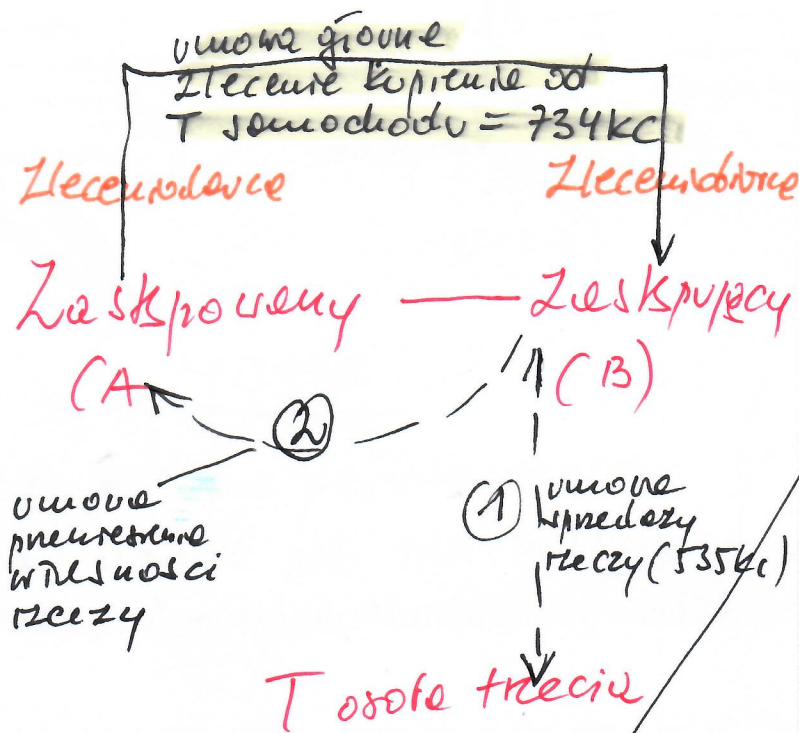 umowa główna
zlecenie kupienia od
T samochodu = 734 KC
Zleceniodawca
Zleceniobiorca
Zastępowany — Zastępujący
(A
(B)
2
umowa
przeniesienia
własności
rzeczy
1
umowa
sprzedaży
rzeczy (535 Kc)
T osoba trzecia